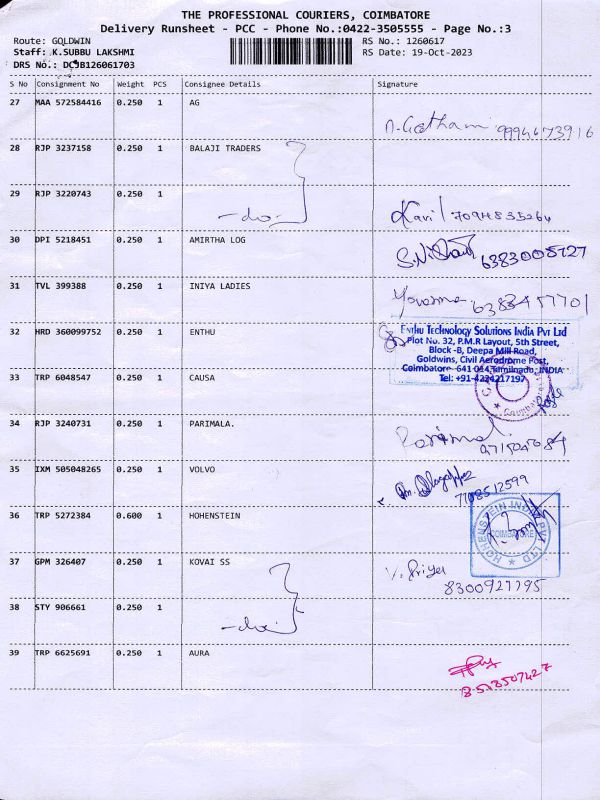 THE PROFESSIONAL COURIERS, COIMBATORE
Delivery Runsheet - PCC - Phone No.:0422-3505555 - Page No.:3
Route: GOLDWIN RS No.: 1260617
Staff: K.SUBBU LAKSHMI RS Date: 19-Oct-2023
DRS No.: DCJB126061703
S No Consignment No Weight PCS Consignee Details Signature
27 MAA 572584416 0.250 1 AG
28 RJP 3237158 0.250 1 BALAJI TRADERS
29 RJP 3220743 0.250 1 -do-
30 DPI 5218451 0.250 1 AMIRTHA LOG
31 TVL 399388 0.250 1 INIYA LADIES
32 HRD 360099752 0.250 1 ENTHU
Enthu Technology Solutions India Pvt Ltd
Plot No. 32, P.M.R Layout, 5th Street,
Block -B, Deepa Mill Road,
Goldwins, Civil Aerodrome Post,
Coimbatore- 641 014, Tamilnadu, INDIA
Tel: +91-4224217197
33 TRP 6048547 0.250 1 CAUSA
34 RJP 3240731 0.250 1 PARIMALA.
35 IXM 505048265 0.250 1 VOLVO
36 TRP 5272384 0.600 1 HOHENSTEIN
HOHENSTEIN INDIA PVT LTD
COIMBATORE
37 GPM 326407 0.250 1 KOVAI SS V. Priya
38 STY 906661 0.250 1 -do-
39 TRP 6625691 0.250 1 AURA